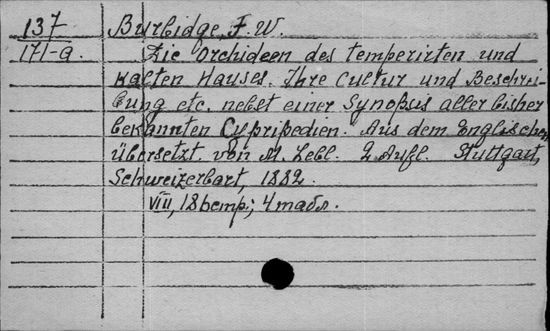 137 Burbidge, F. W.
171-a. Die Orchideen des temperirten und
Kalten Hauses. Ihre Cultur und Beschrei-
bung etc. nebst einer Synopsis aller bisher
bekannten Cypripedien. Aus dem Englischen
übersetzt von M. Lebl. 2 Aufl. Stuttgart,
Schweizerbart, 1882.
VIII, 18 bemp; 4 табл.